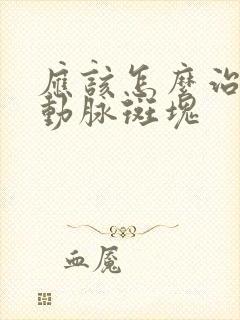 應該怎麼治
動脈斑塊
血魘